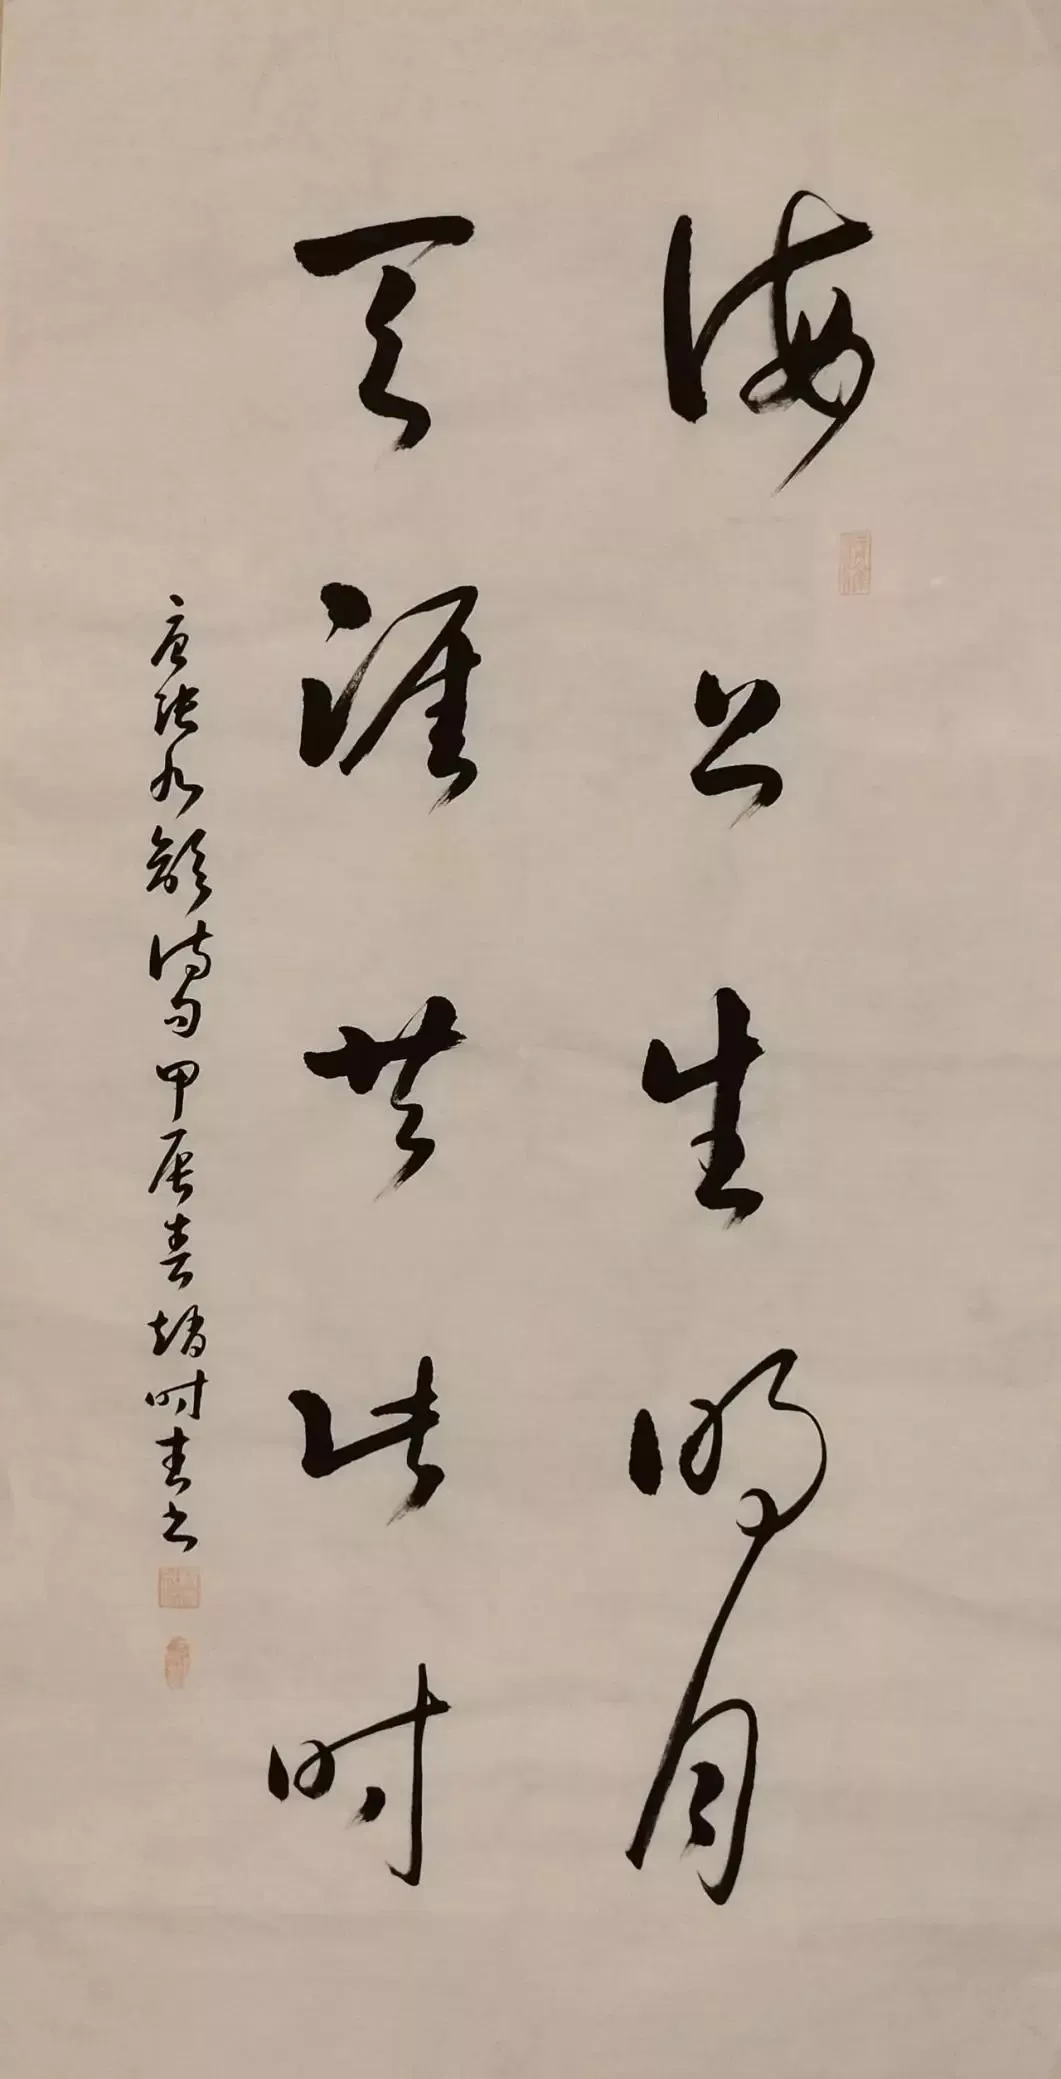 海上生明月
天涯共此时
唐张九龄诗句甲辰春 时春书